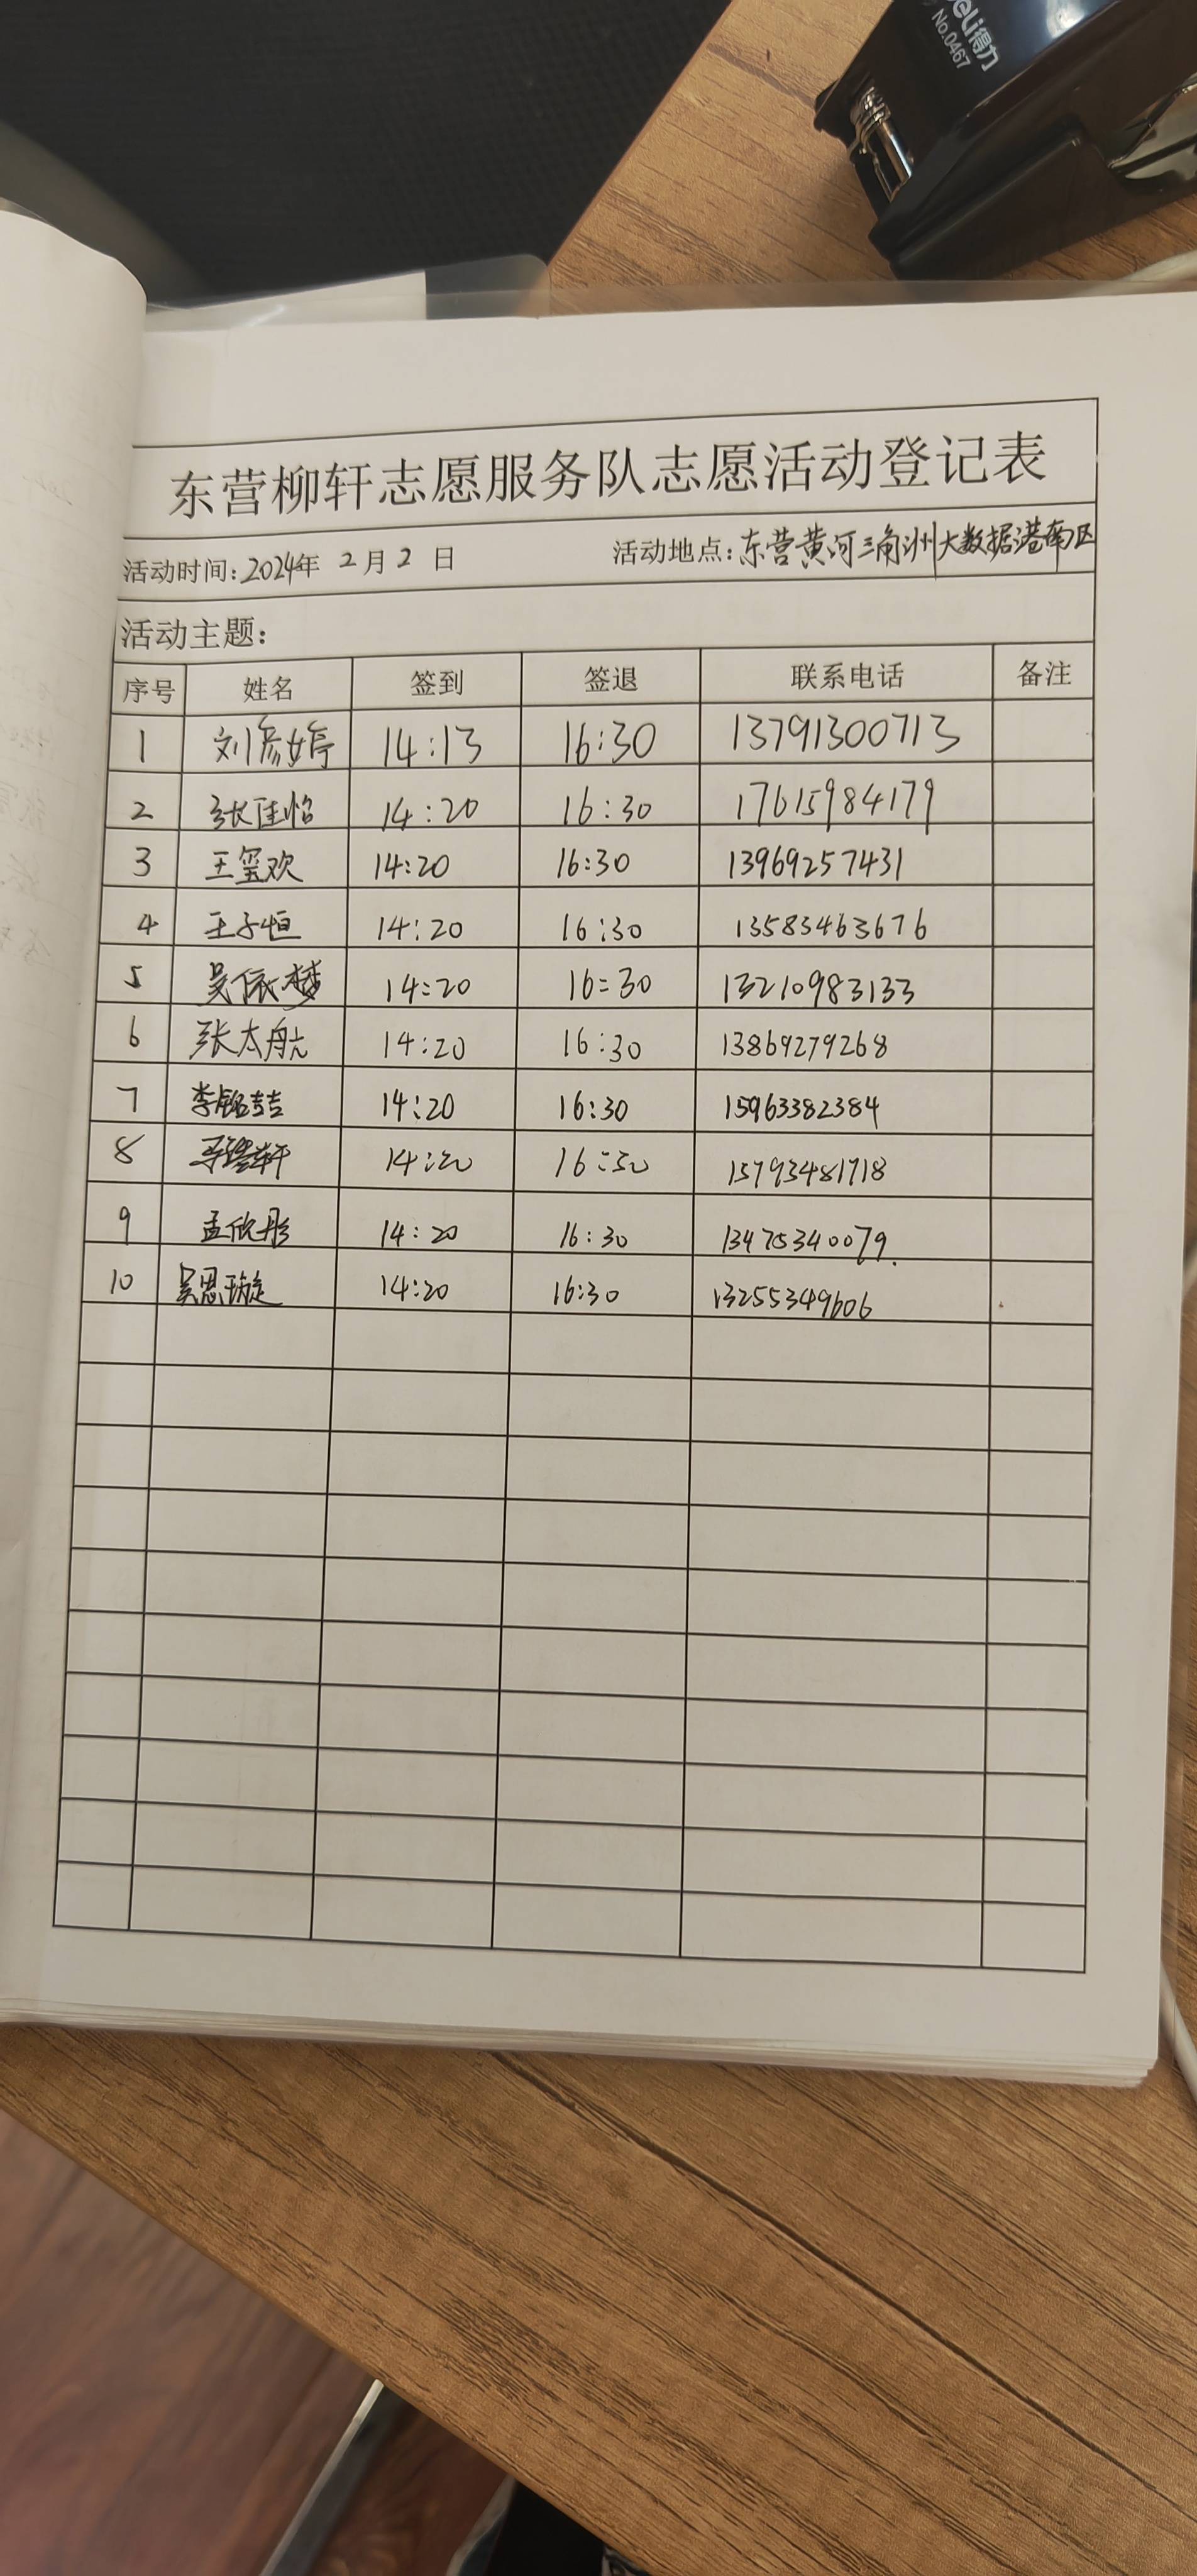 deli得力
No.0467
东营柳轩志愿服务队志愿活动登记表
活动时间:2024年 2月2 日 活动地点:东营黄河三角洲大数据港南区
活动主题:
序号 姓名 签到 签退 联系电话 备注
1 刘彦婷 14:13 16:30 13791300713
2 张佳怡 14:20 16:30 17615984179
3 王玺欢 14:20 16:30 13969257431
4 王子恒 14:20 16:30 13583463676
5 吴依梦 14:20 16:30 13210983133
6 张太航 14:20 16:30 13869279268
7 李铭喆 14:20 16:30 15963382384
8 14:20 16:30 15793481718
9 孟欣彤 14:20 16:30 13475340079.
10 吴思璇 14:20 16:30 13255349606